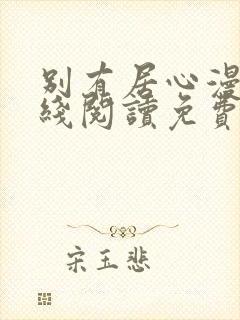 别有居心漫
綫閱讀免費
宋玉悲